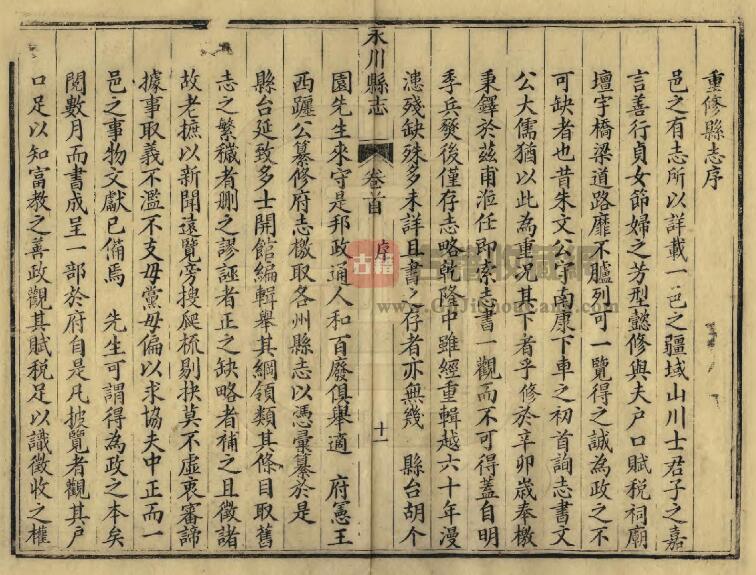 重修縣志序
邑之有志所以詳載一邑之疆域山川士君子之嘉
言善行貞女節婦之芳型懿修與夫戶口賦稅祠廟
壇宇橋梁道路靡不臚列可一覽得之誠為政之不
可缺者也昔朱文公守南康下車之初首詢志書文
公大儒猶以此為亟況其下者乎修於辛卯歲奉檄
秉鐸於茲甫涖任即索志書一觀而不可得蓋自明
季兵燹後僅存志略乾隆中雖經重輯越六十年漫
漶殘缺殊多未詳且書之存者亦無幾 縣台胡个
永川縣志
卷首
序
十一
園先生來守是邦政通人和百廢俱舉適 府憲王
西躔公纂修府志檄取各州縣志以憑彙纂於是
縣台延致多士開館編輯舉其綱領類其條目取舊
志之繁穢者刪之謬誣者正之缺略者補之且徵諸
故老摭以新聞遠覽旁搜爬梳剔抉莫不虛衷審諦
據事取義不濫不支毋黨毋偏以求協夫中正而一
邑之事物文獻已備焉 先生可謂得為政之本矣
閱數月而書成呈一部於府自是凡披覽者觀其戶
口足以知富教之善政觀其賦稅足以識徵收之權
古籍
古籍收藏網
www.GuJiShouCang.com